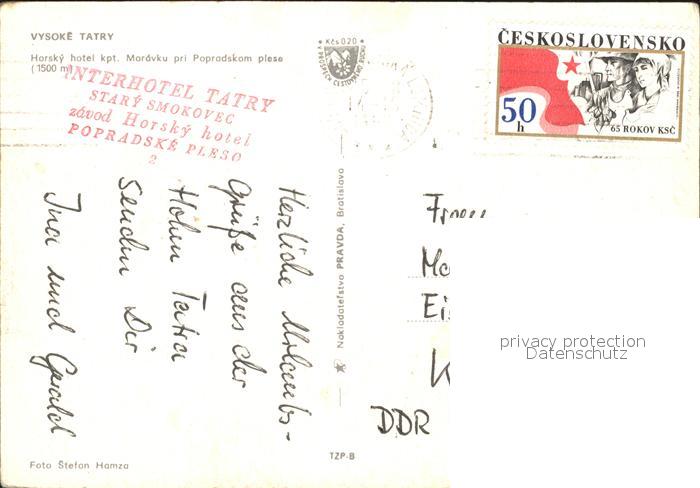 VYSOKÉ TATRY
Horský hotel kpt. Morávku pri Popradskom plese
(1500 m)
INTERHOTEL TATRY
STARÝ SMOKOVEC
závod Horský hotel
POPRADSKÉ PLESO
2
Kčs 0,20
ČESKOSLOVENSKO
50 h
65 ROKOV KSČ
Herzliche Urlaubs-
Grüße aus der
Hohen Tatra
Senden Dir
Ina und Gerald
Nakladateľstvo PRAVDA, Bratislava
Frau
DDR
privacy protection
Datenschutz
Foto Štefan Hamza
TZP-B